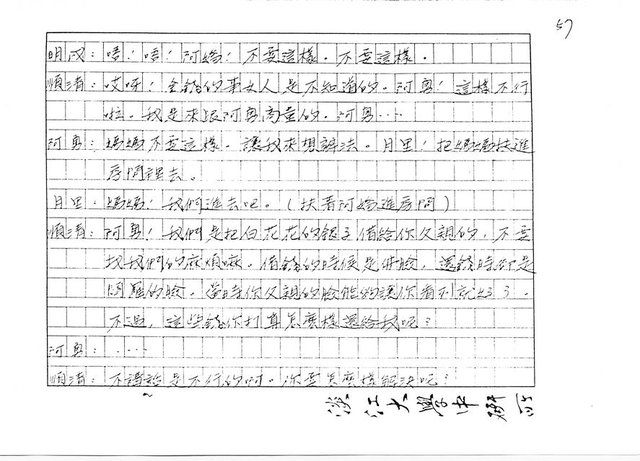 57
明成：唔！唔！阿嬌！不要這樣。不要這樣。
順清：哎呀！金錢的事女人是不知道的。阿勇！這樣不行
啦。我是來跟阿勇商量的。阿勇……
阿勇：媽媽不要這樣。讓我來想辦法。月里！把媽媽扶進
房間裡去。
月里：媽媽！我們進去吧。（扶著阿嬌進房間）
順清：阿勇！我們是把白花花的銀子借給你父親的，不要
找我們的麻煩嘛。借錢的時候是佛臉，還錢時却是
閻羅的臉。當時你父親的臉能夠讓你看到就好了。
不過，這些錢你打算怎麼樣還給我呢？
阿勇：……
順清：不講話是不行的啊。你要怎麼樣解決呢？
淡江大學中研所